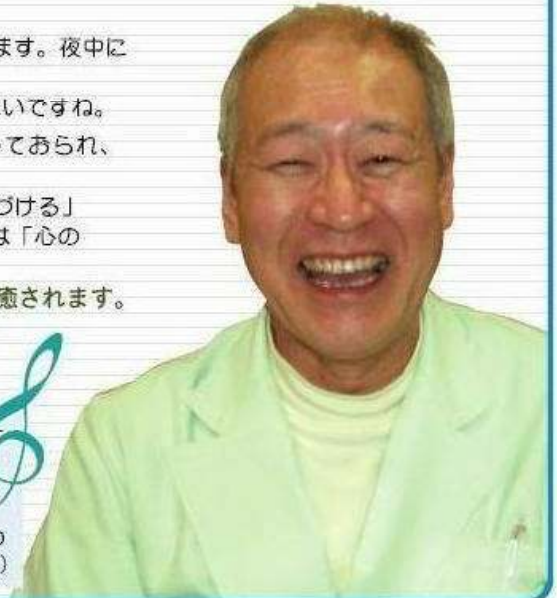 ます。夜中に
いですね。
ておられ、
づける」
は「心の
癒されます。
の
)